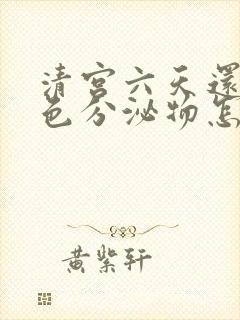 清宫六天還
色分泌物怎
黄紫轩